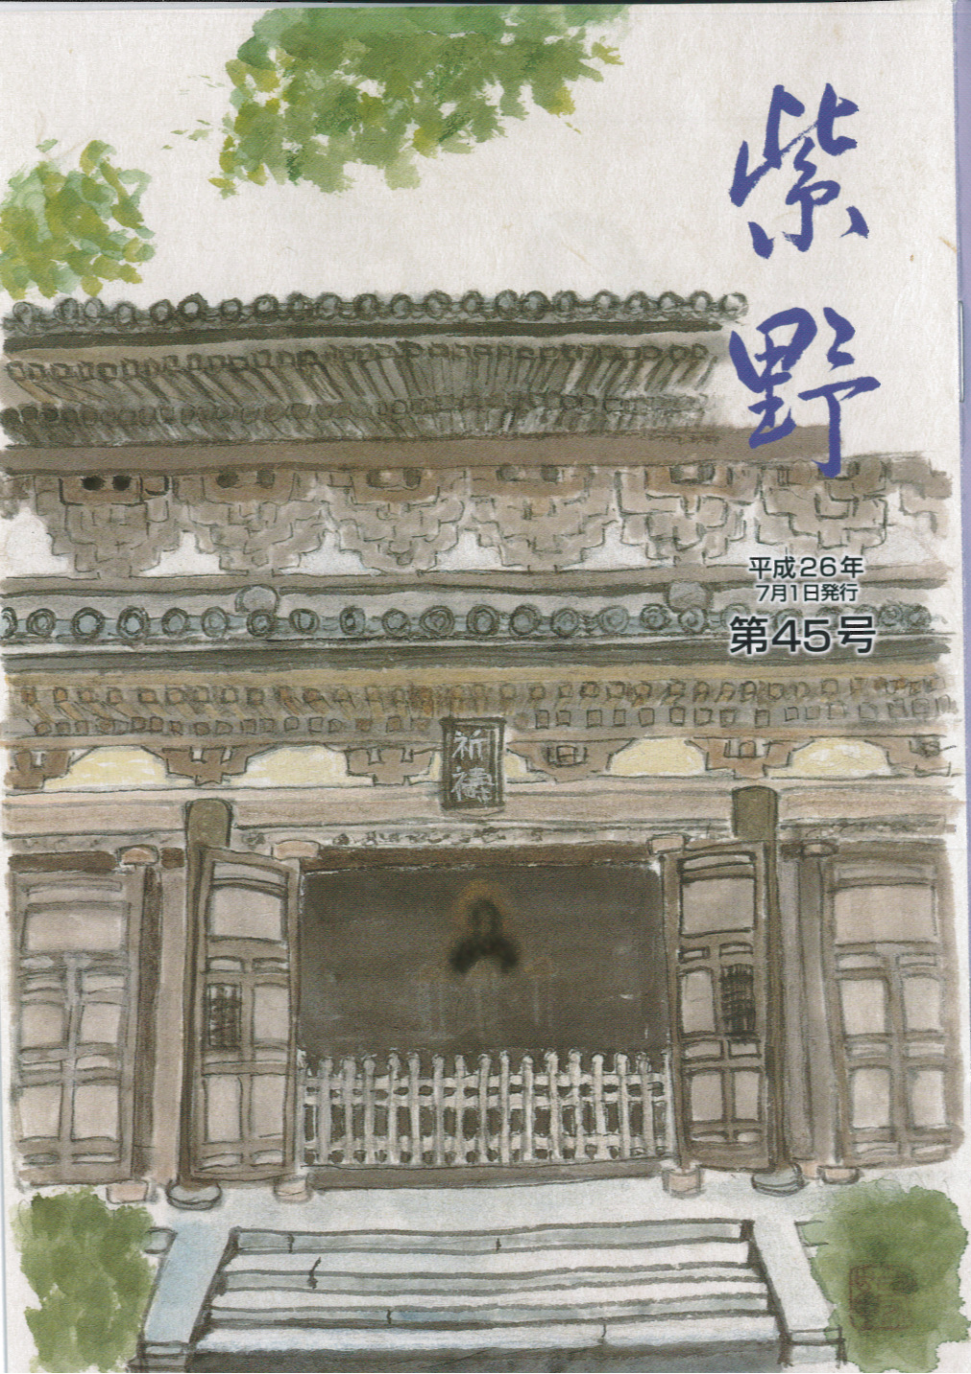 紫野
平成26年
7月1日発行
第45号
祈祷